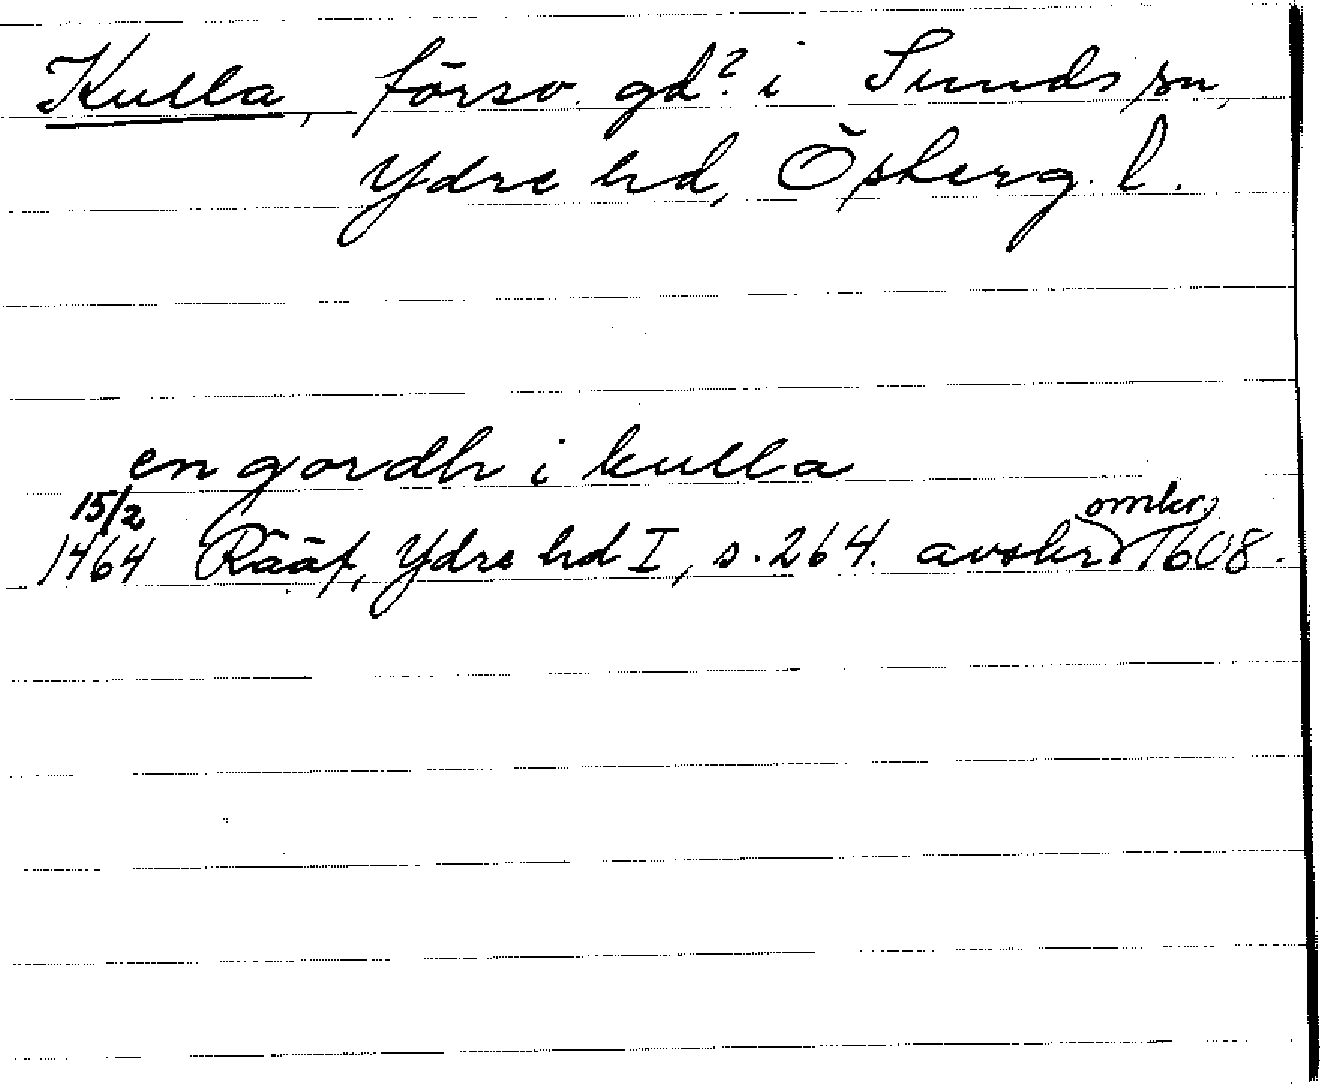 Kulla, försv. gd? i Sunds sn,
Ydre hd, Österg. l.
en gordh i kulla
15/2
1464 Rääf, Ydre hd I, s. 264. avskr omkr 1608.